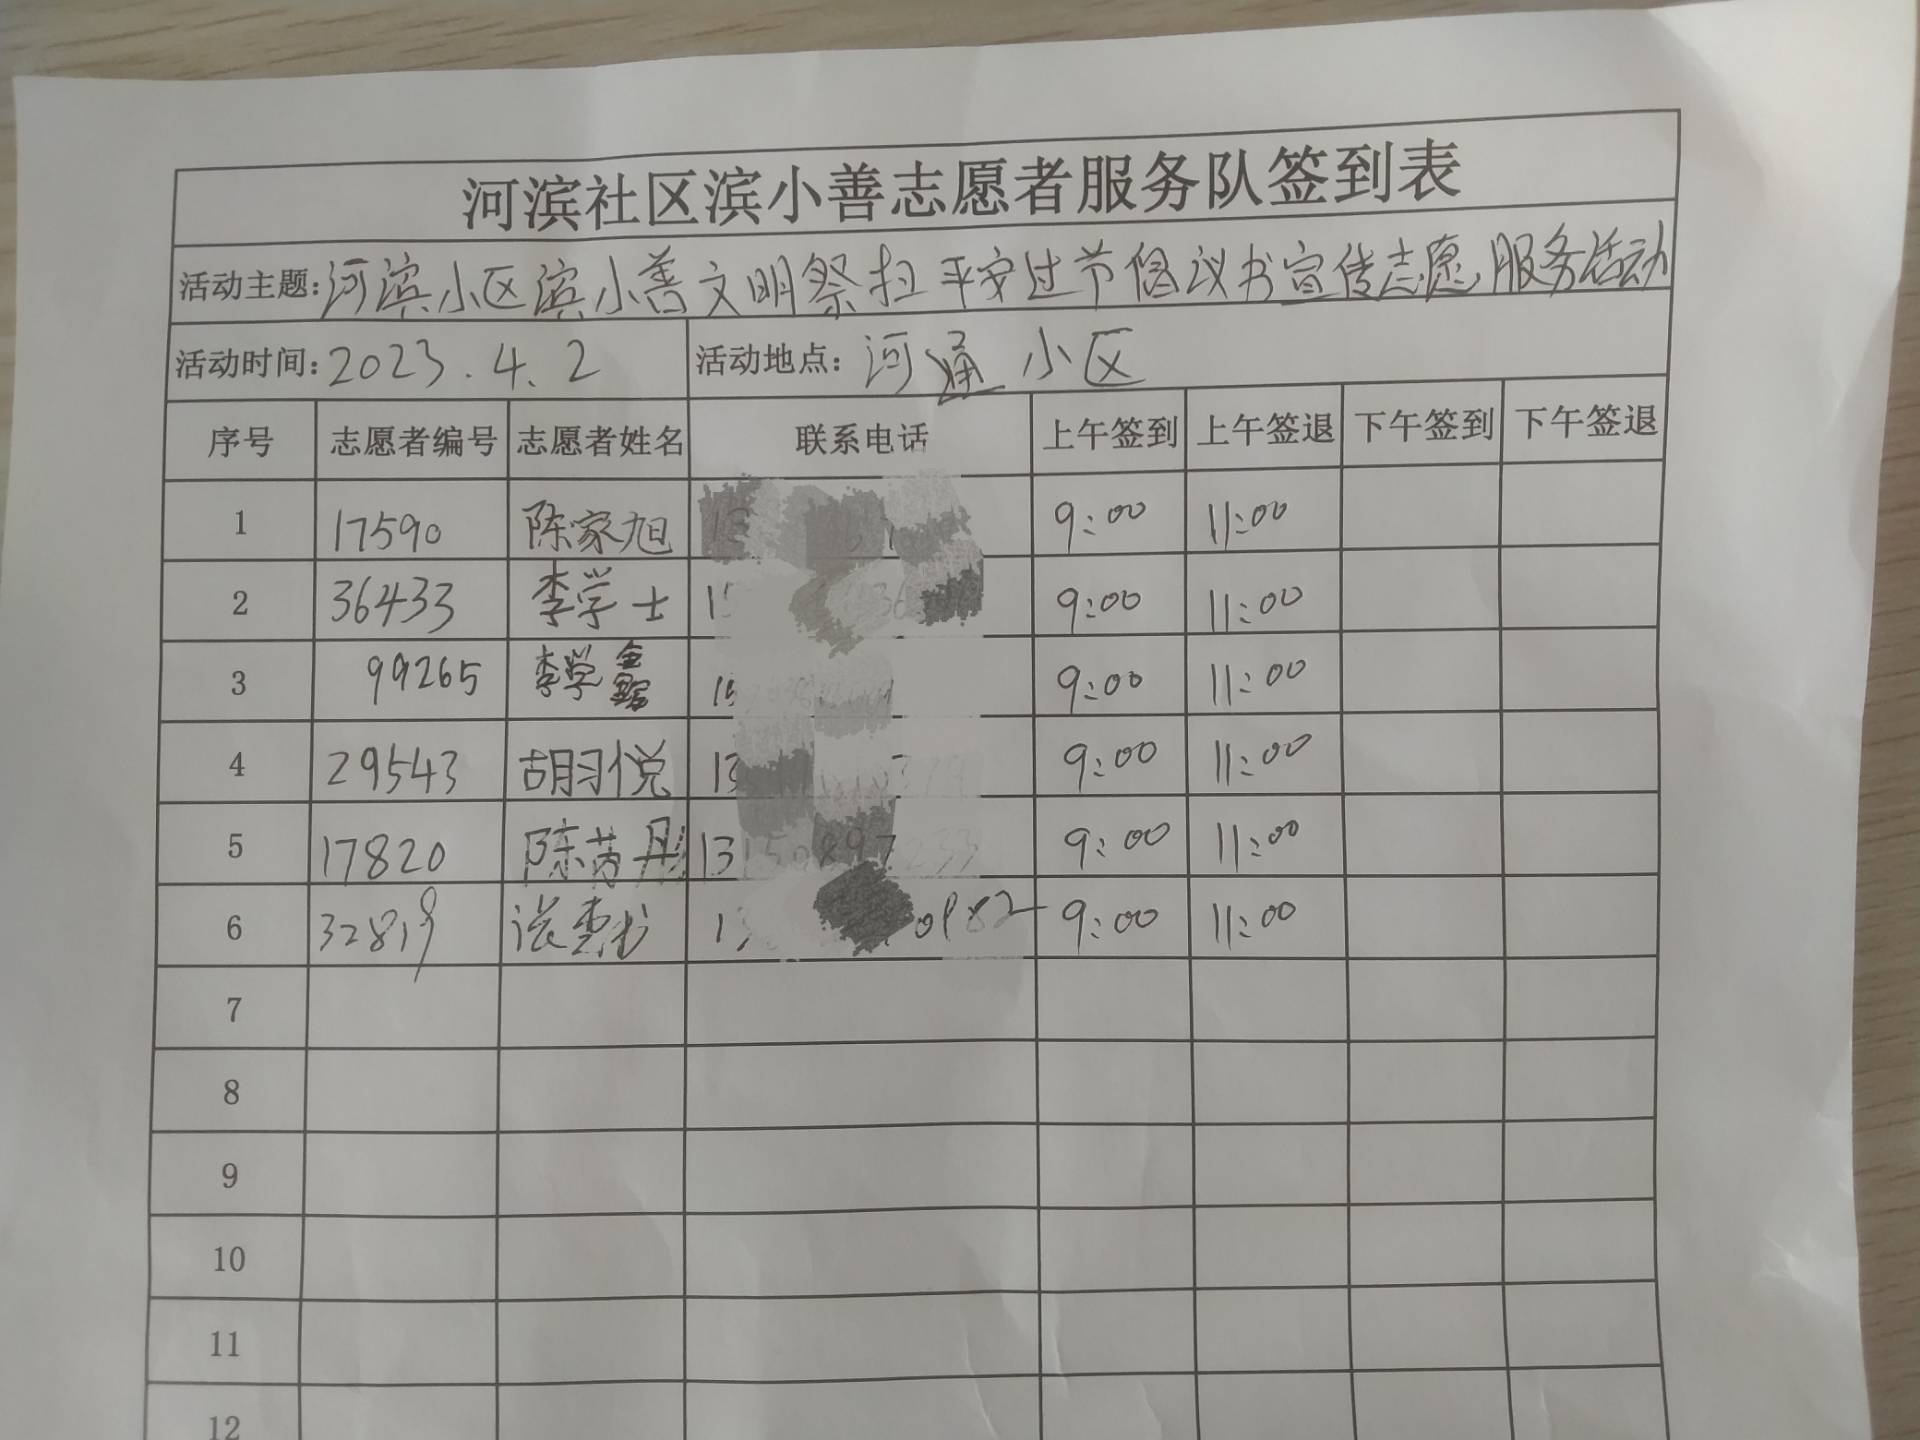 河滨社区滨小善志愿者服务队签到表
活动主题:河滨小区滨小善文明祭扫平安过节倡议书宣传志愿服务活动
活动时间:2023.4.2 活动地点:河通小区
序号 志愿者编号 志愿者姓名 联系电话 上午签到 上午签退 下午签到 下午签退
1 17590 陈家旭 9:00 11:00
2 36433 李学士 9:00 11:00
3 99265 李学 9:00 11:00
4 29543 胡羽悦 9:00 11:00
5 17820 陈芮彤 9:00 11:00
6 32819 9:00 11:00
7
8
9
10
11
12